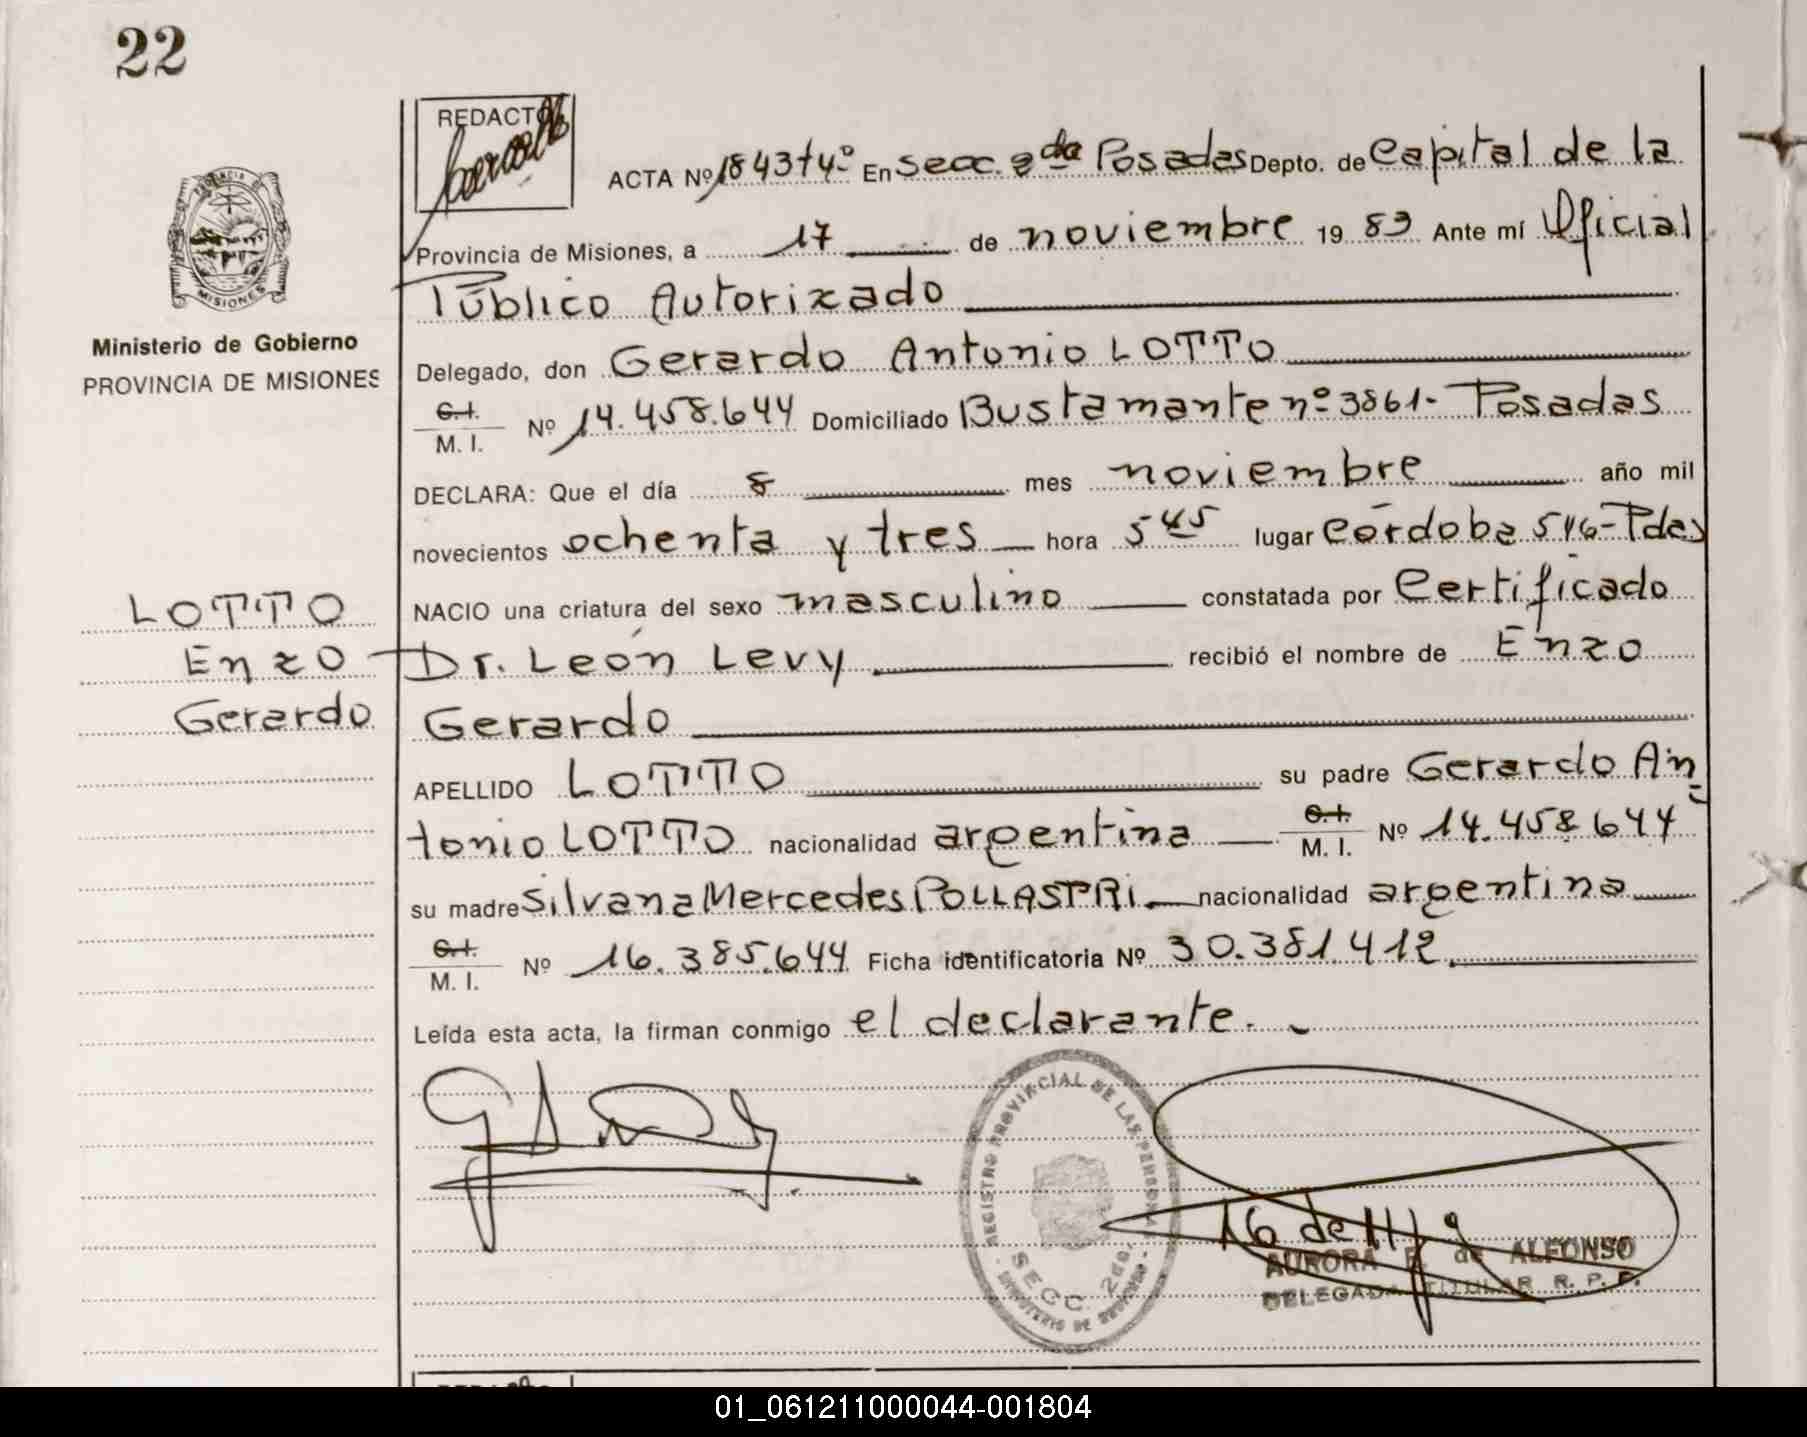 22
REDACTO
ACTA Nº 1843 t 4º En secc. 2da Posadas Depto. de Capital de la
Provincia de Misiones, a 17 de noviembre 1983 Ante mí Oficial
Público Autorizado
PROVINCIA DE
MISIONES
Ministerio de Gobierno
PROVINCIA DE MISIONES
Delegado, don Gerardo Antonio LOTTO
C.I.
M. I. Nº 14.458.644 Domiciliado Bustamante nº 3861- Posadas
DECLARA: Que el día 8 mes noviembre año mil
novecientos ochenta y tres hora 5 45 lugar Córdoba 546-Pdas
LOTTO
Enzo
Gerardo
NACIO una criatura del sexo masculino constatada por Certificado
Dr. León Levy recibió el nombre de Enzo
Gerardo
APELLIDO LOTTO su padre Gerardo An
tonio LOTTO nacionalidad argentina C.I. M. I. Nº 14.458.644
su madre Silvana Mercedes POLLASTRI nacionalidad argentina
C.I.
M. I. Nº 16.385.644 Ficha identificatoria Nº 30.381.412
Leída esta acta, la firman conmigo el declarante.
REGISTRO PROVINCIAL DE LAS PERSONAS
SECC. 2da.
- MINISTERIO DE GOBIERNO -
AURORA de ALFONSO
DELEGADA TITULAR R. P. P.
01_061211000044-001804